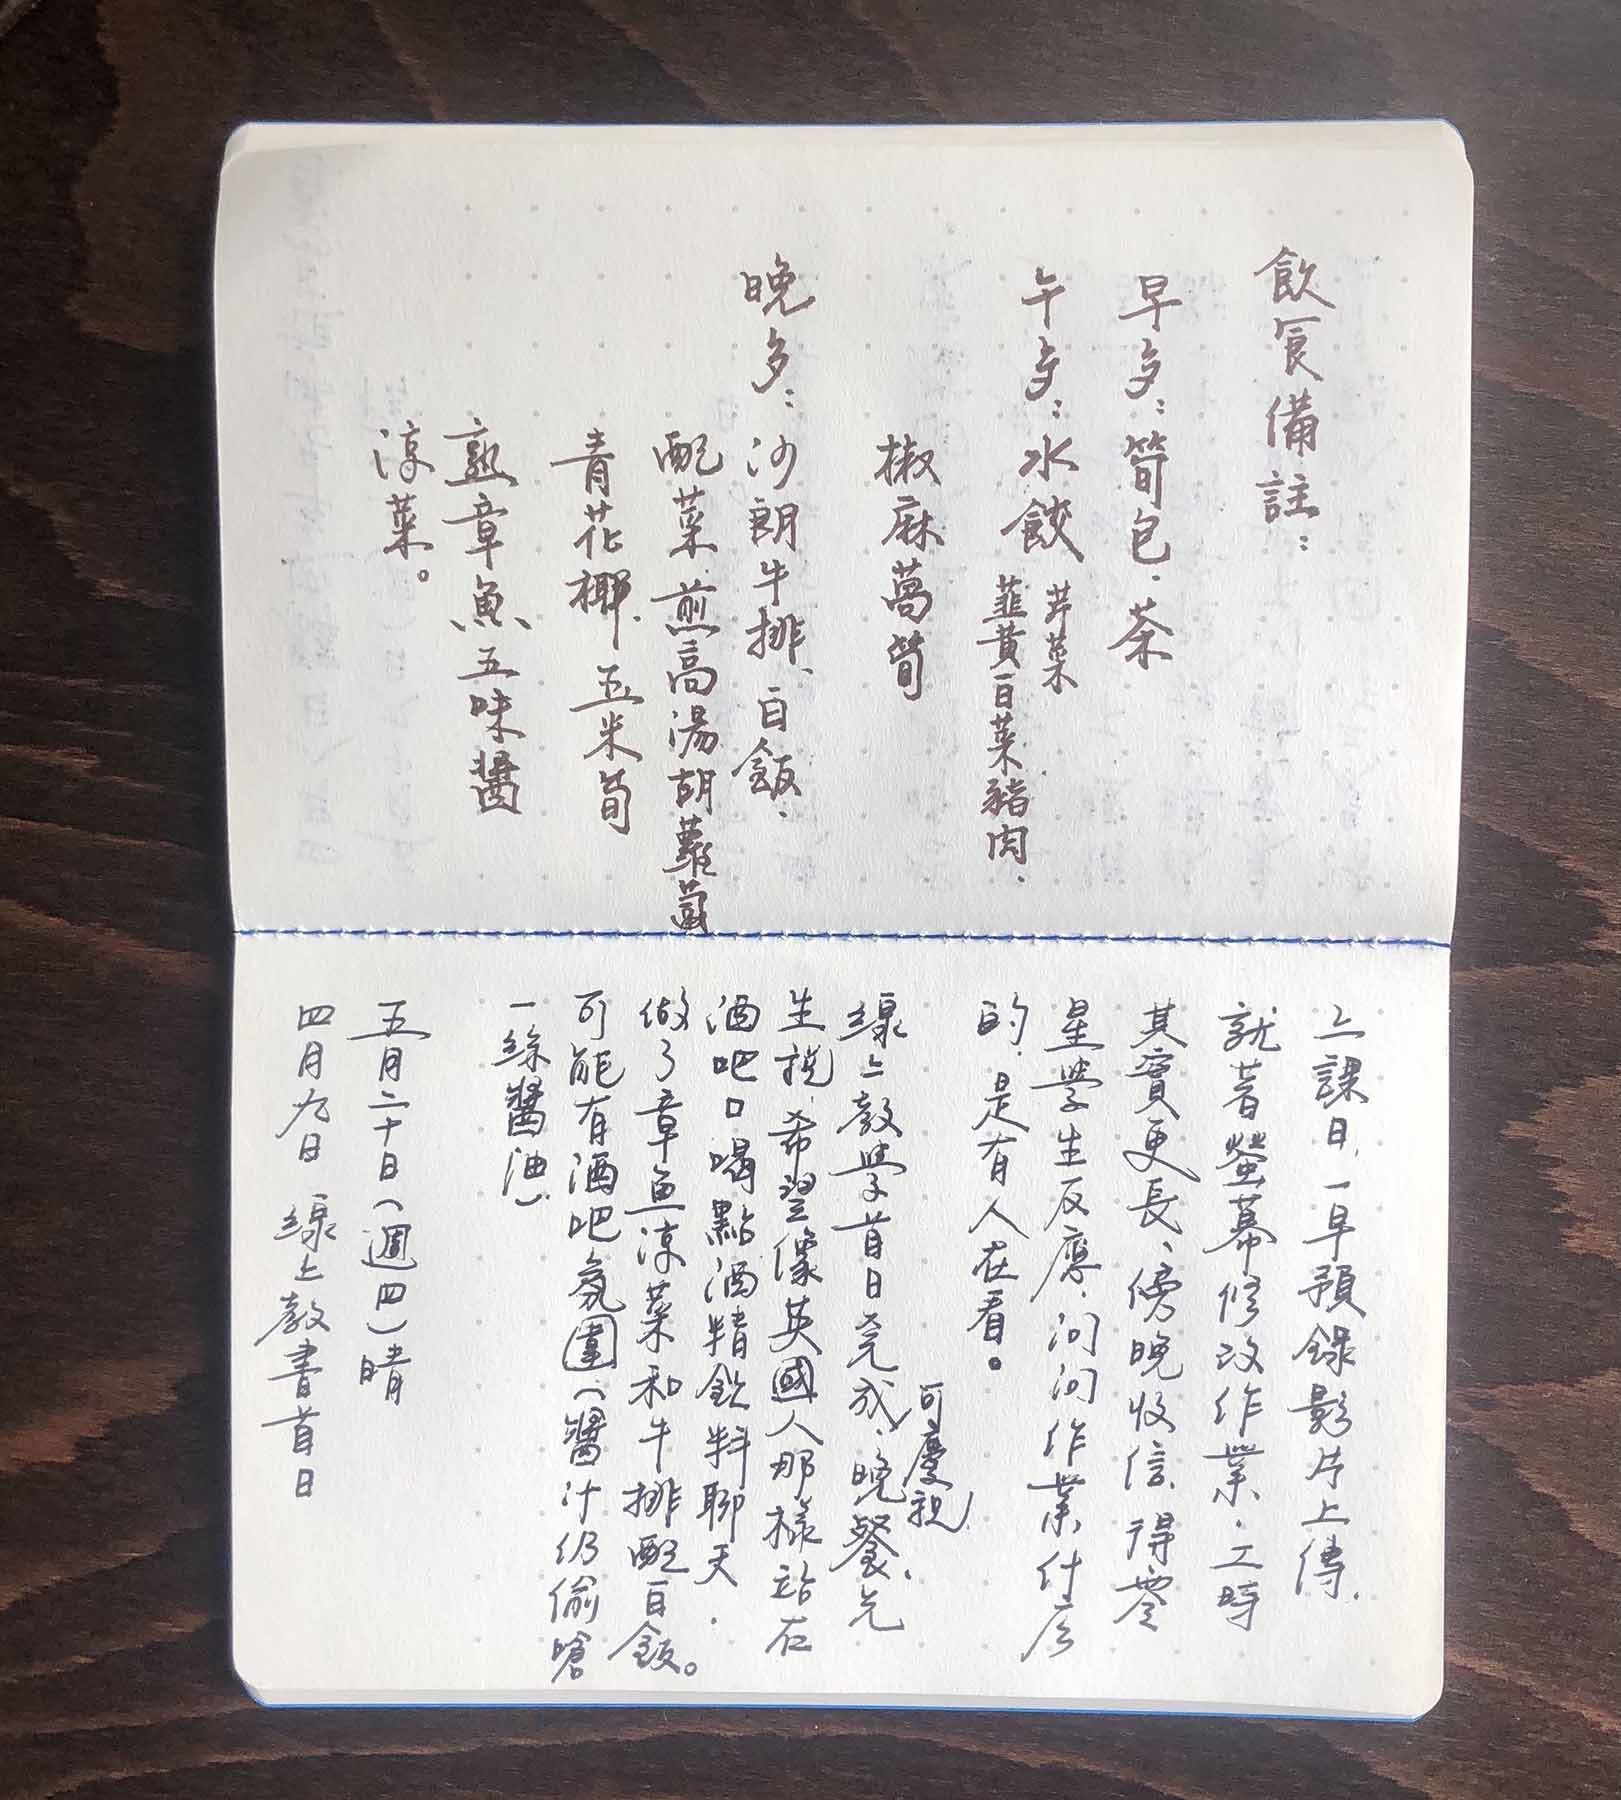 飲食備註:
早歺:筍包.茶
午歺:水餃 芹菜
韮黃白菜豬肉.
椒麻萵筍
晚歺:沙朗牛排、白飯.
配菜.煎高湯胡蘿蔔
青花椰.玉米筍
熟章魚五味醬
涼菜。
上課日,一早預錄影片上傳,
就著螢幕修改作業.工時
其實更長、傍晚收信、得零
星學生反應.問問作業什麼
的.是有人在看。
可慶祝,
線上教學首日完成、晚餐、先
生說,希望像英國人那樣站在
酒吧口喝點酒精飲料聊天.
做了章魚涼菜和牛排配白飯。
可能有酒吧氛圍(醬汁仍偷嗆
一絲醬油)
五月二十日(週四)晴
四月九日 線上教書首日